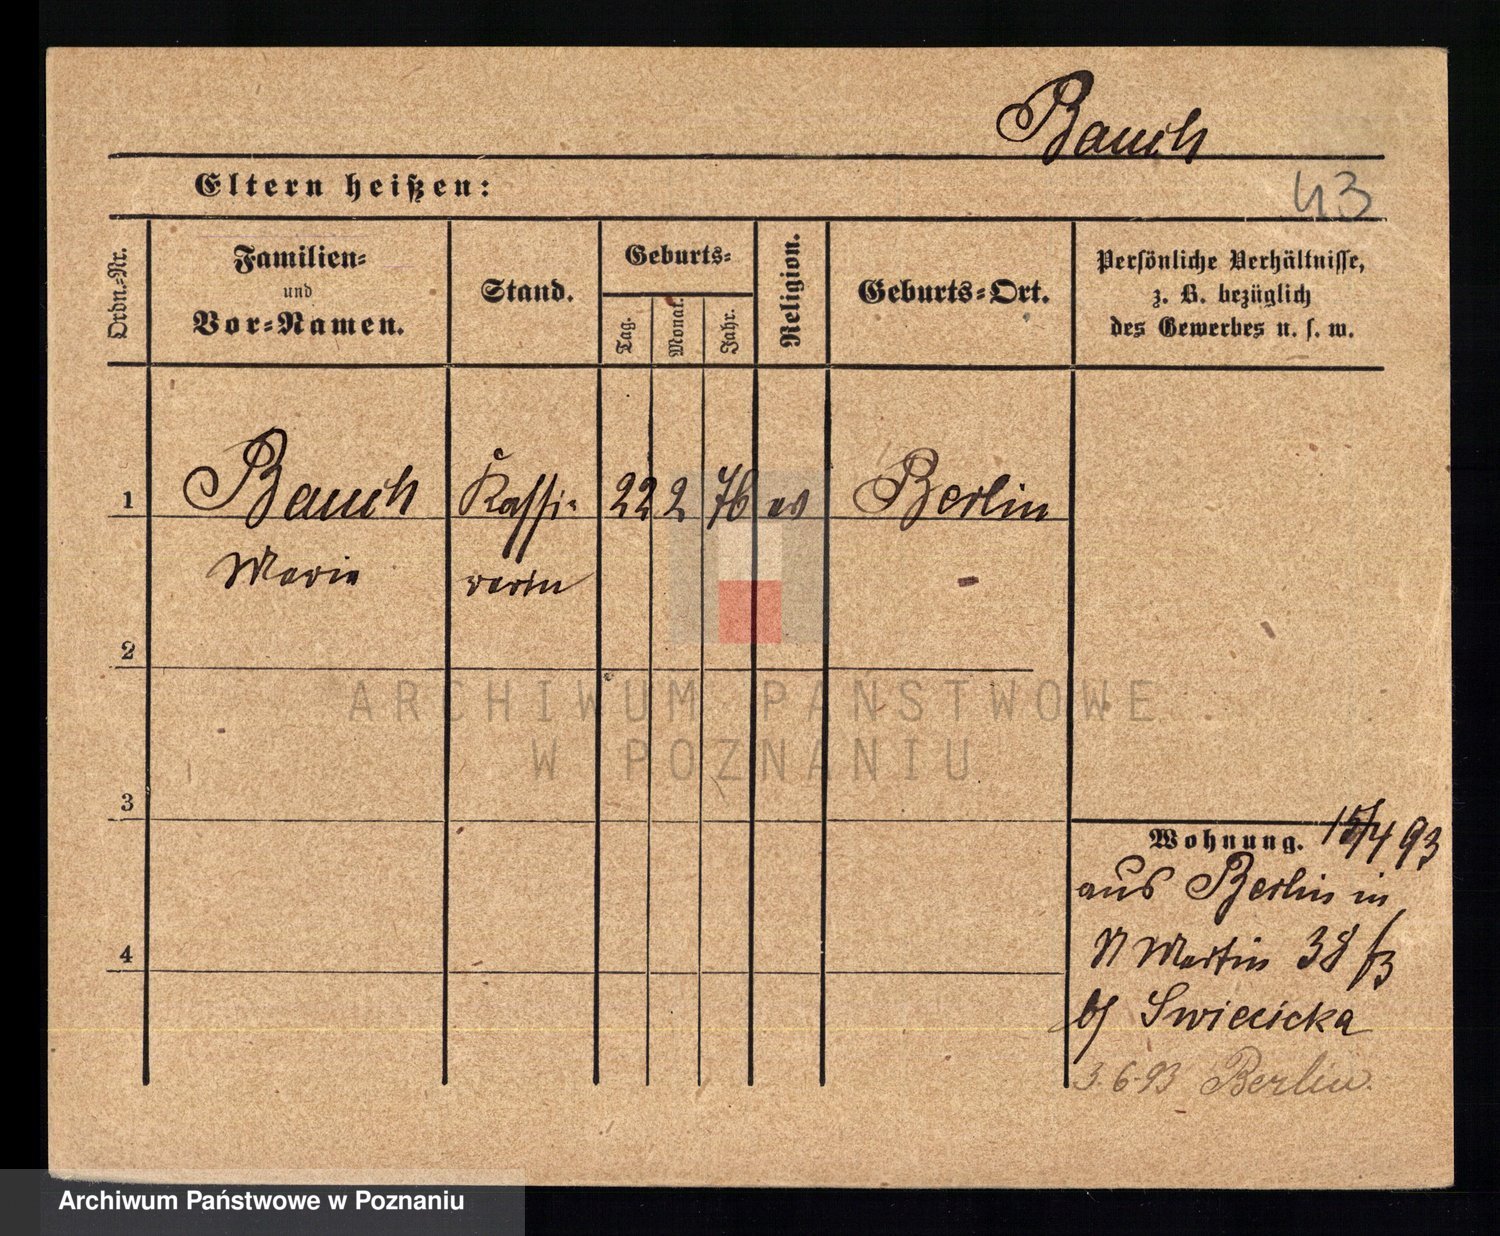 Bauch
43
Eltern heißen:
Ordn.-Nr.
Familien-
und
Vor-Namen.
Stand.
Geburts-
Tag.
Monat.
Jahr.
Religion.
Geburts-Ort.
Persönliche Verhältnisse,
z. B. bezüglich
des Gewerbes u. s. w.
1 Bauch Kassi- 22 2 76 ev Berlin
Marie rerin
2
ARCHIWUM PAŃSTWOWE
W POZNANIU
3
Wohnung. 15/4 93
aus Berlin in
St Martin 38
4
bj Swiecicka
3.6.93 Berlin.
Archiwum Państwowe w Poznaniu